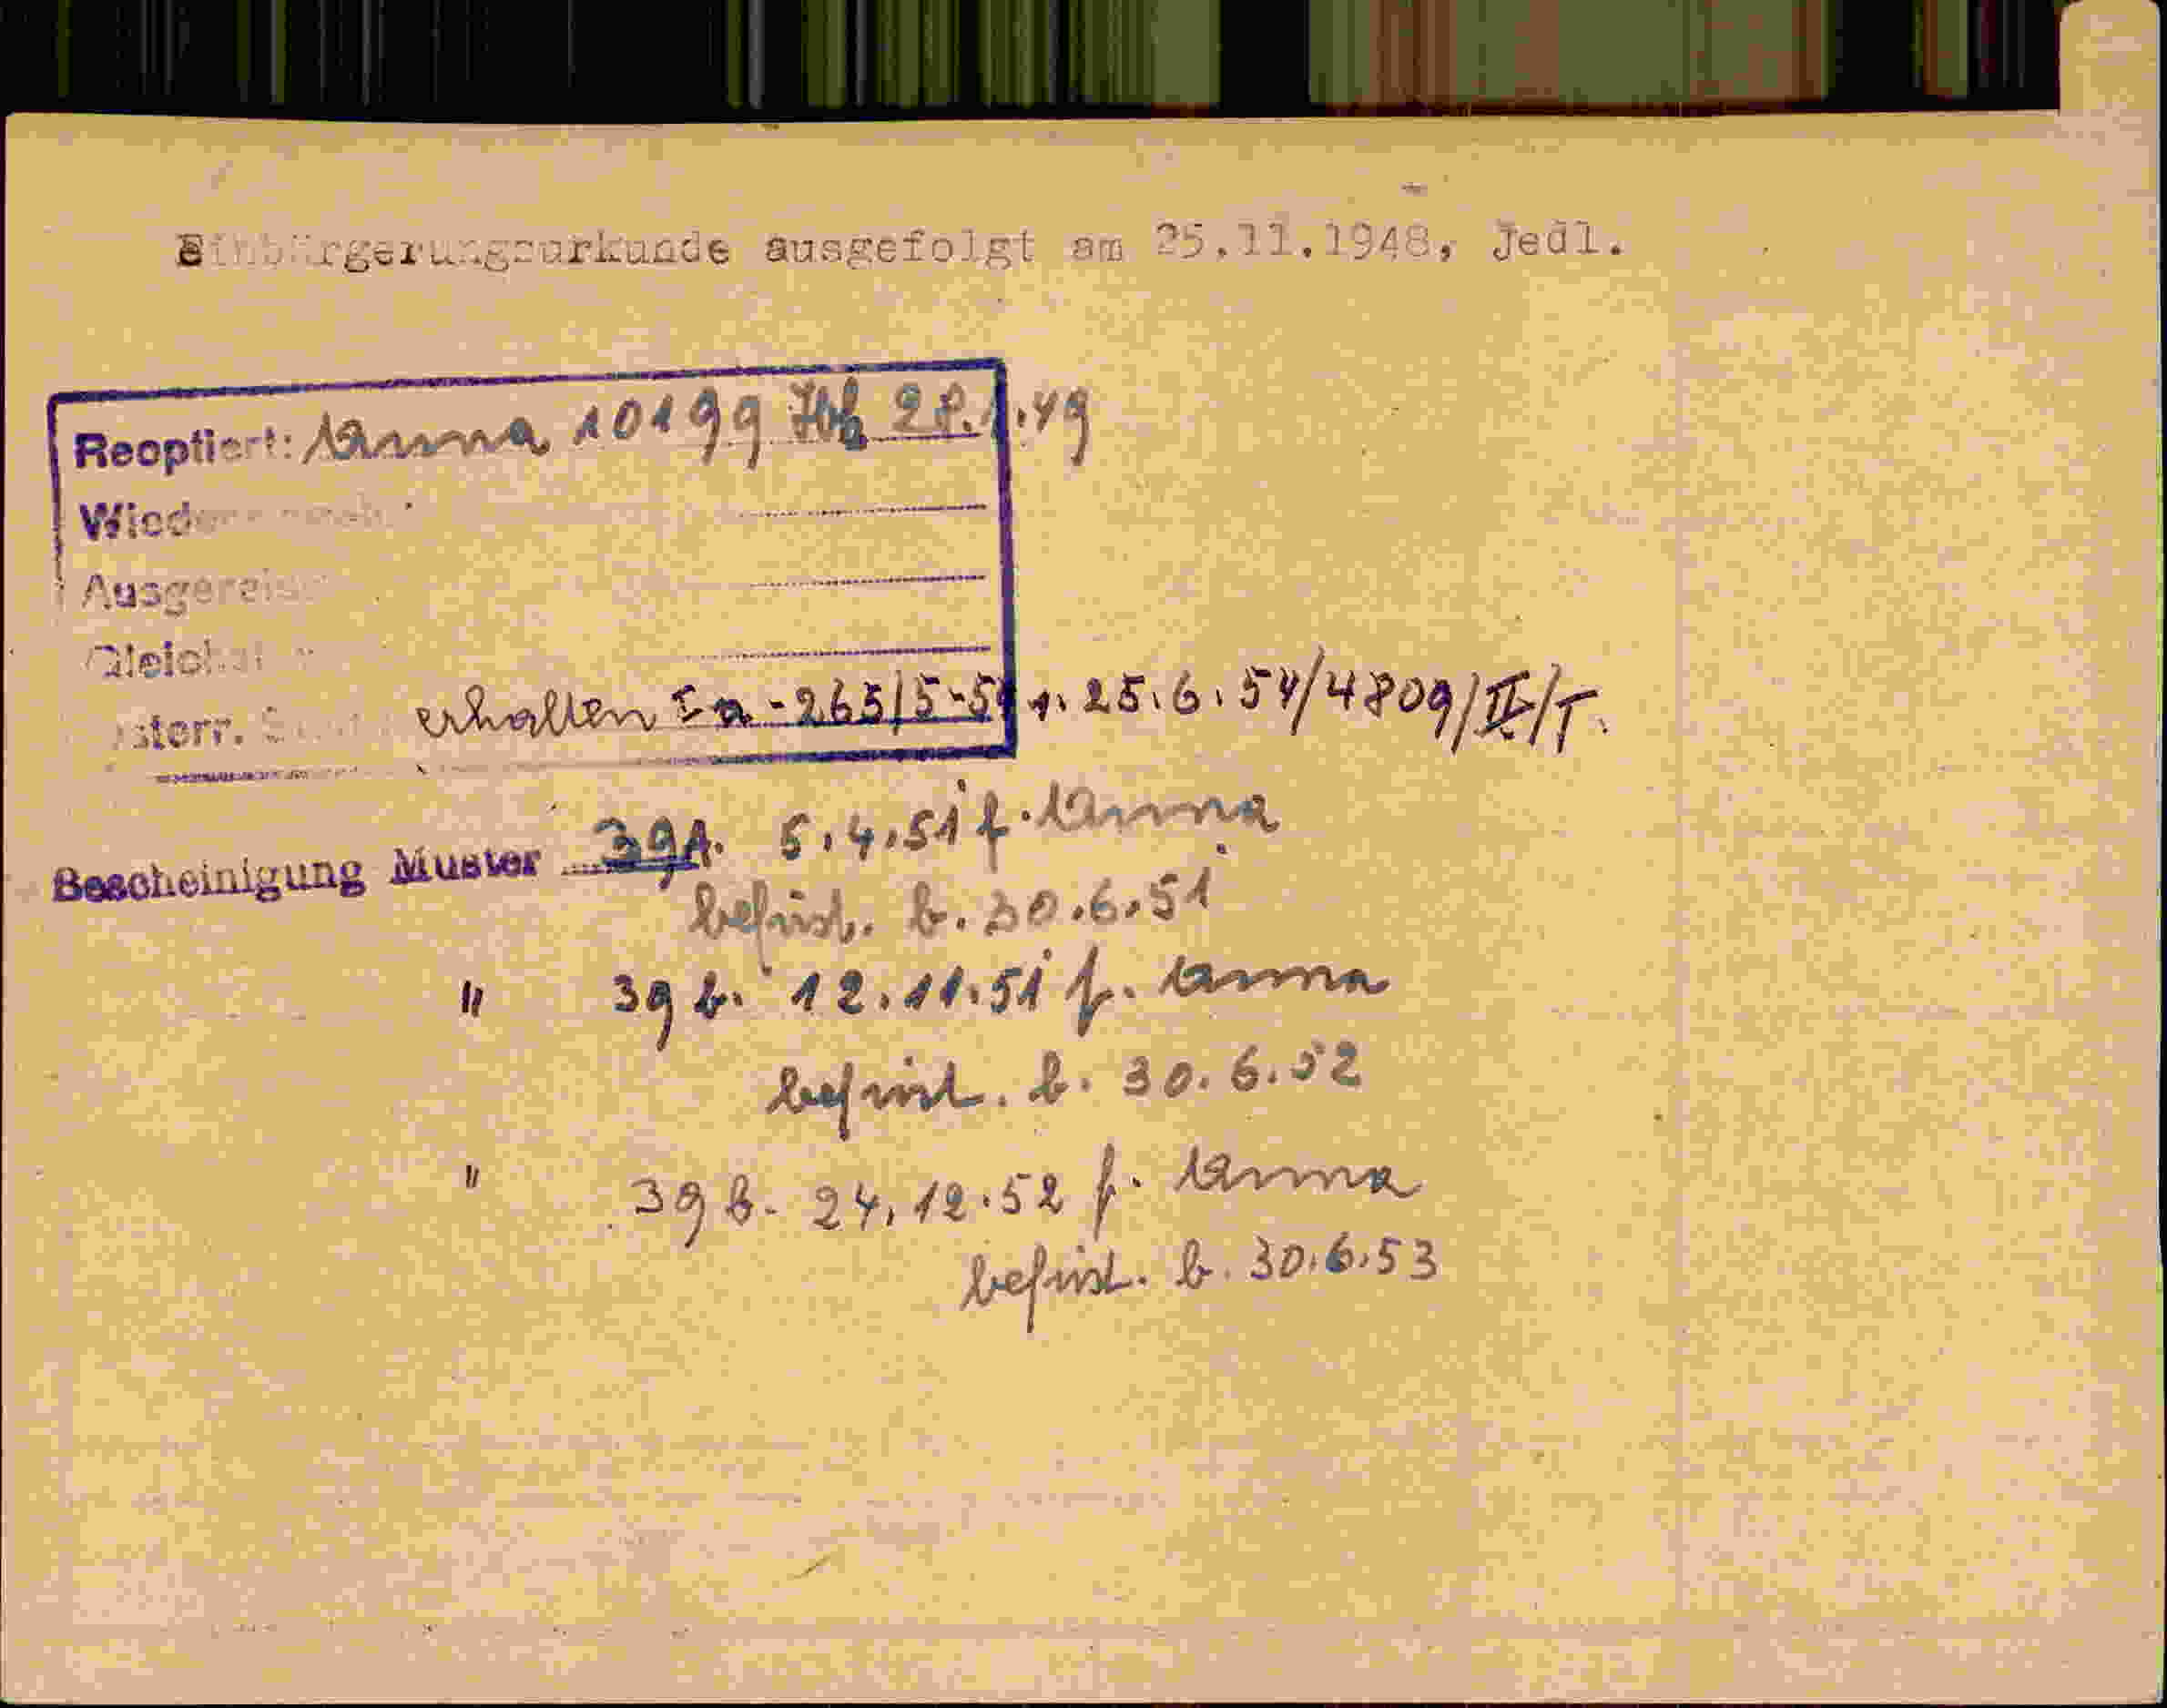 Einbürgerungsurkunde ausgefolgt am 25.11.1948, Jedl.
Reoptiert: Anna 10199 28.1.49
Ausgereist
erhalten I a - 265/5-54 v. 25.6.54/4809/II/T.
Bescheinigung Muster 39A. 5.4.51 f. Anna
befrist. b. 30.6.51
" 39 b. 12.11.51 f. Anna
befrist. b. 30.6.52
" 39 b. 24.12.52 f. Anna
befrist. b. 30.6.53